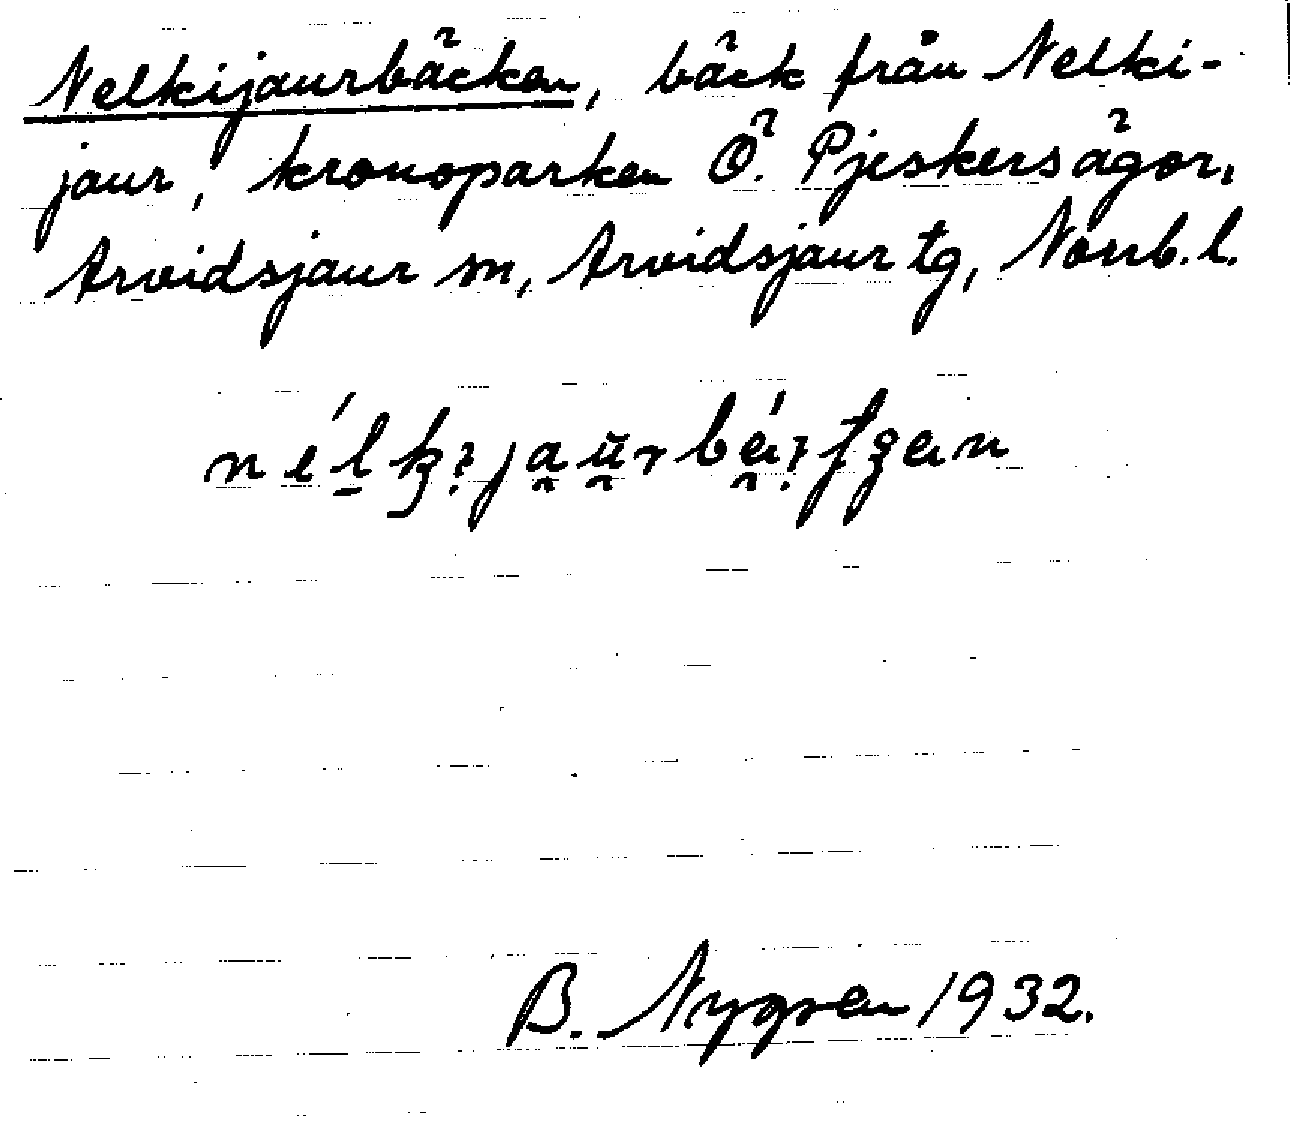 Nelkijaurbäcken, bäck från Nelki-
jaur, kronoparken Ö. Pjeskersägor,
Arvidsjaur sn, Arvidsjaur tg, Norrb. l.
B. Nygren 1932.